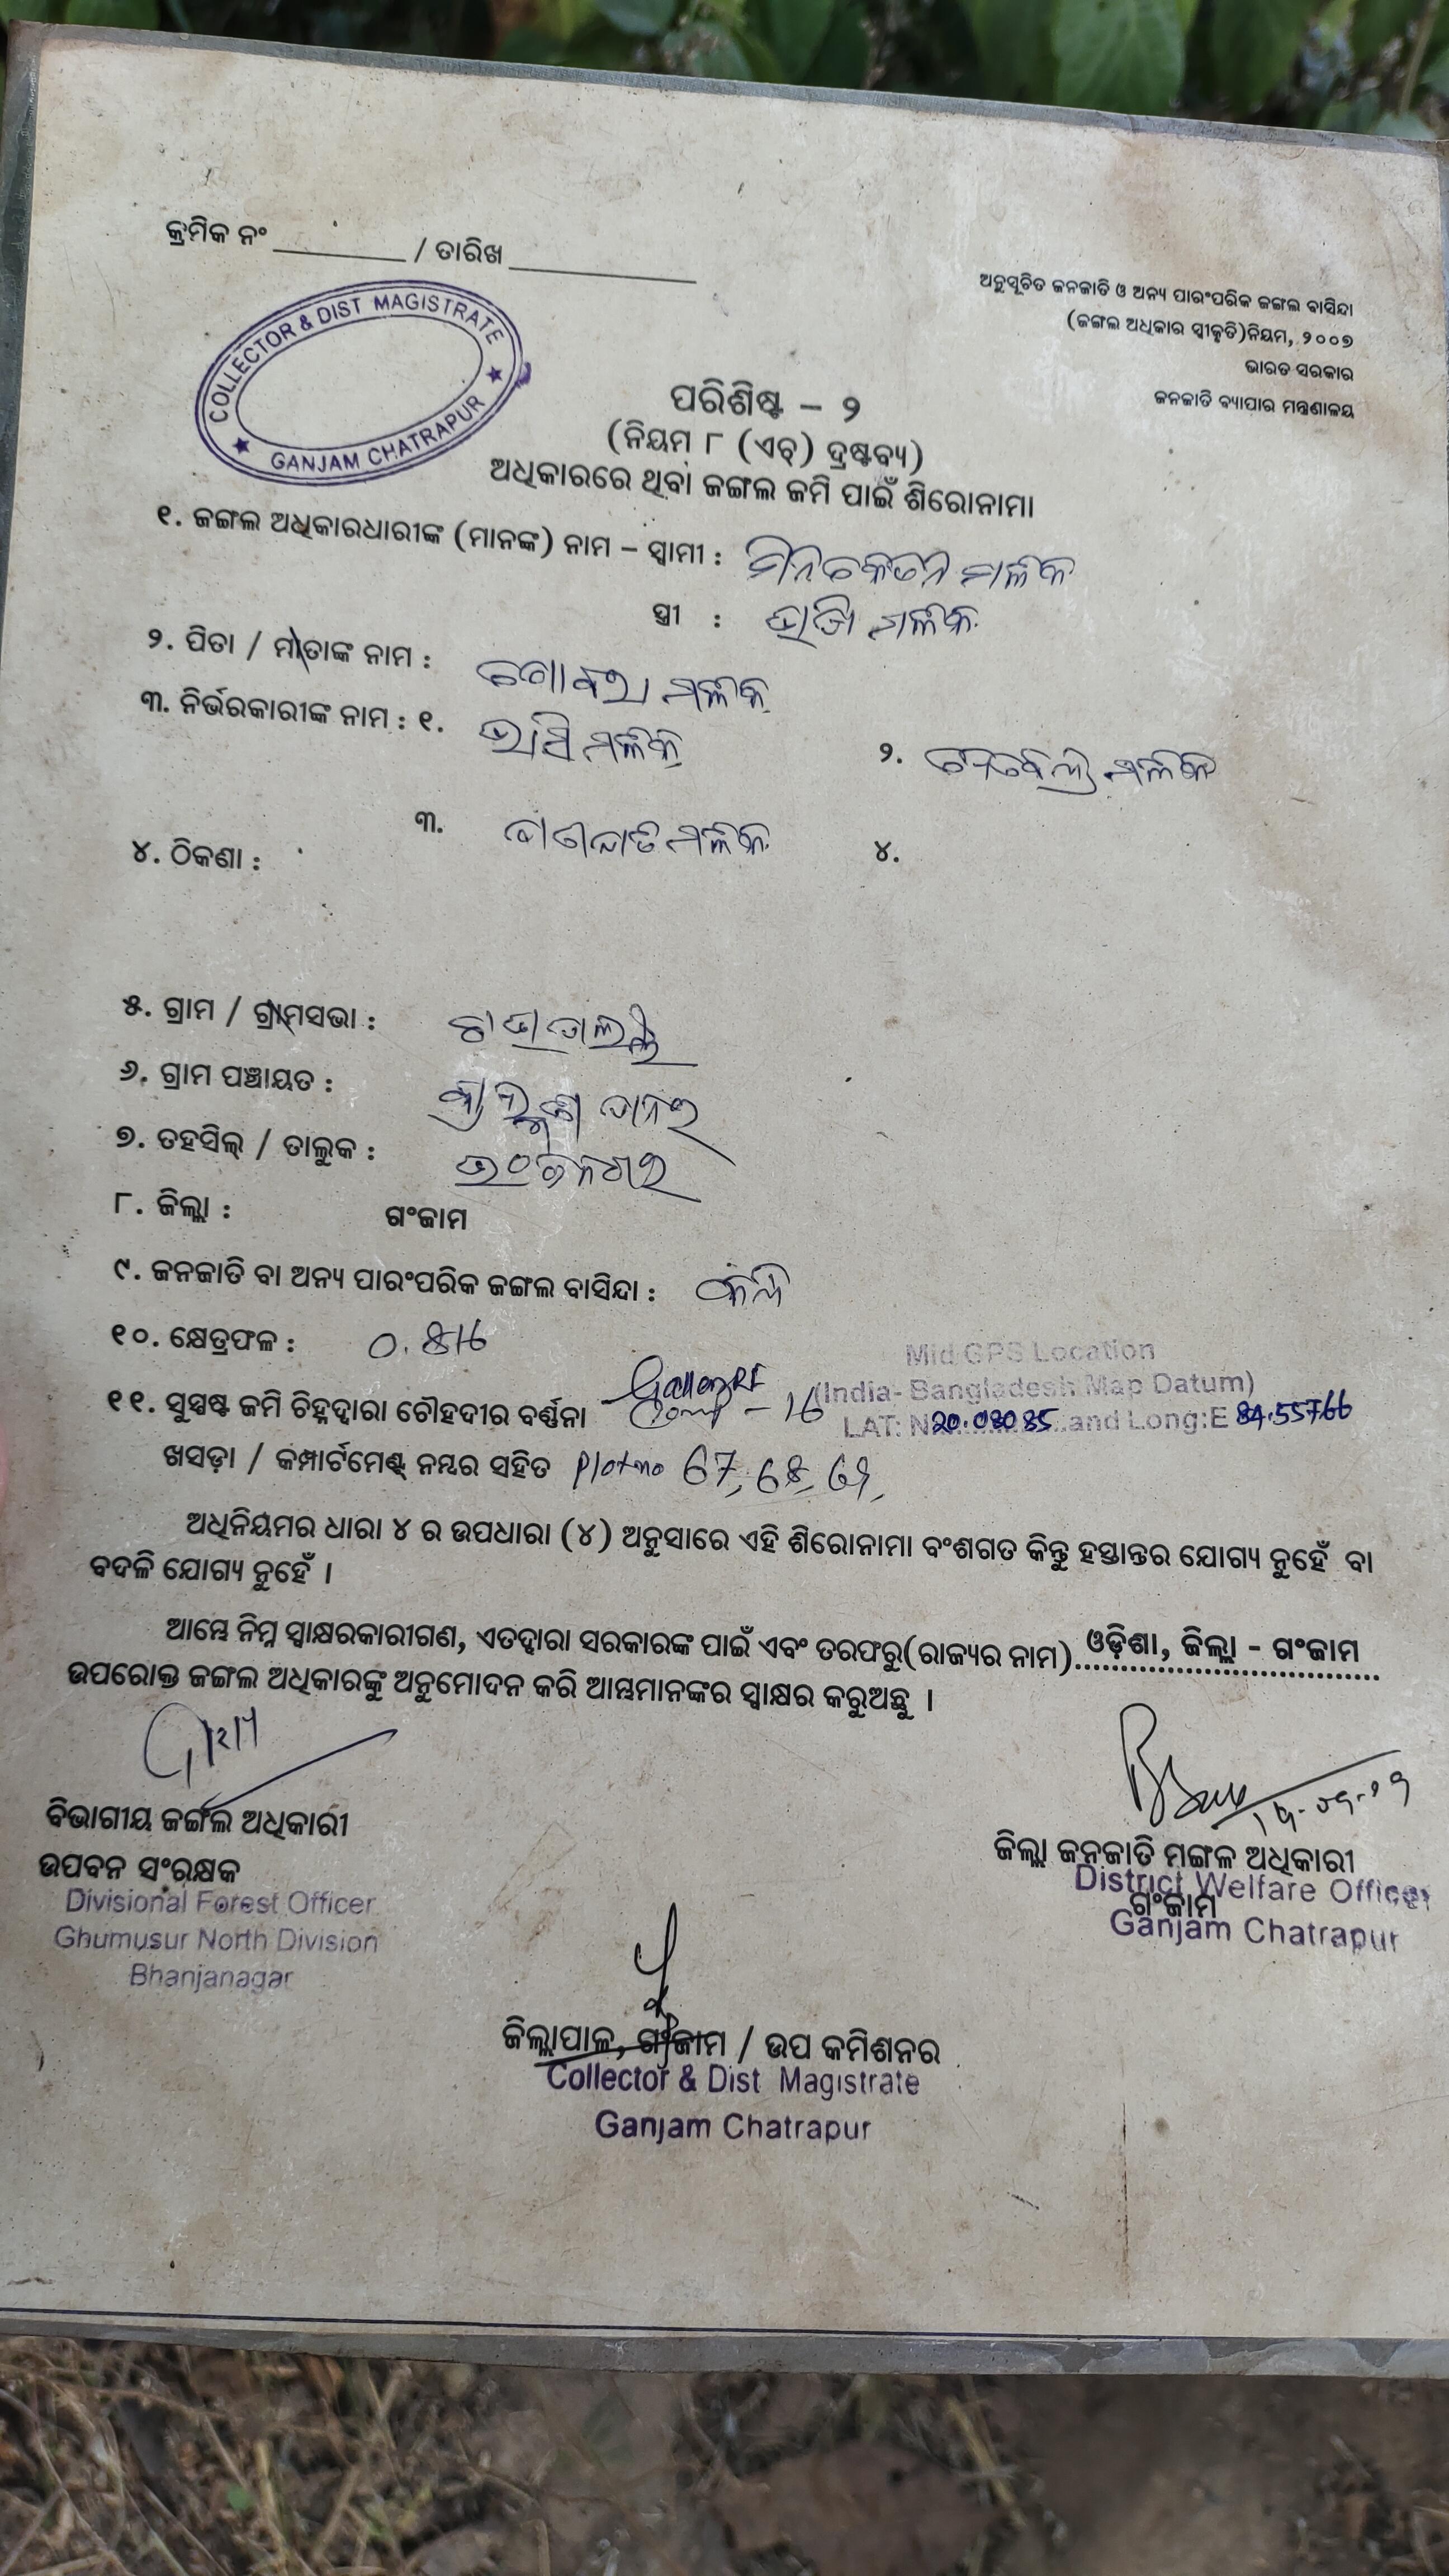 କ୍ରମିକ ନଂ _________ / ତାରିଖ ____________
ଅନୁସୂଚିତ ଜନଜାତି ଓ ଅନ୍ୟ ପାରଂପରିକ ଜଙ୍ଗଲ ବାସିନ୍ଦା
(ଜଙ୍ଗଲ ଅଧିକାର ସ୍ୱୀକୃତି)ନିୟମ, ୨୦୦୭
ଭାରତ ସରକାର
ଜନଜାତି ବ୍ୟାପାର ମନ୍ତ୍ରଣାଳୟ
COLLECTOR & DIST MAGISTRATE
★ GANJAM CHATRAPUR ★
ପରିଶିଷ୍ଟ – ୨
(ନିୟମ ୮ (ଏଚ୍) ଦ୍ରଷ୍ଟବ୍ୟ)
ଅଧିକାରରେ ଥିବା ଜଙ୍ଗଲ ଜମି ପାଇଁ ଶିରୋନାମା
୧. ଜଙ୍ଗଲ ଅଧିକାରଧାରୀଙ୍କ (ମାନଙ୍କ) ନାମ – ସ୍ୱାମୀ : ମିନକେତନ ମଳିକ
ସ୍ତ୍ରୀ : ମଳିକ
୨. ପିତା / ମାତାଙ୍କ ନାମ : ମଳିକ
୩. ନିର୍ଭରକାରୀଙ୍କ ନାମ : ୧. ମଳିକ ୨. ମଳିକ
୩. ମଳିକ ୪.
୪. ଠିକଣା :
୫. ଗ୍ରାମ / ଗ୍ରାମସଭା :
୬. ଗ୍ରାମ ପଞ୍ଚାୟତ :
୭. ତହସିଲ୍ / ତାଲୁକ : ଭଂଜନଗର
୮. ଜିଲ୍ଲା : ଗଂଜାମ
୯. ଜନଜାତି ବା ଅନ୍ୟ ପାରଂପରିକ ଜଙ୍ଗଲ ବାସିନ୍ଦା :
୧୦. କ୍ଷେତ୍ରଫଳ : 0.816
Mid GPS Location
(India- Bangladesh Map Datum)
୧୧. ସୁସ୍ପଷ୍ଟ ଜମି ଚିହ୍ନଦ୍ୱାରା ଚୌହଦୀର ବର୍ଣ୍ଣନା – 16 LAT: N 20.08085 and Long:E 84.55766
ଖସଡ଼ା / କମ୍ପାର୍ଟମେଣ୍ଟ୍ ନମ୍ବର ସହିତ Plot no 67, 68, 69,
ଅଧିନିୟମର ଧାରା ୪ ର ଉପଧାରା (୪) ଅନୁସାରେ ଏହି ଶିରୋନାମା ବଂଶଗତ କିନ୍ତୁ ହସ୍ତାନ୍ତର ଯୋଗ୍ୟ ନୁହେଁ ବା
ବଦଳି ଯୋଗ୍ୟ ନୁହେଁ ।
ଆମ୍ଭେ ନିମ୍ନ ସ୍ୱାକ୍ଷରକାରୀଗଣ, ଏତଦ୍ୱାରା ସରକାରଙ୍କ ପାଇଁ ଏବଂ ତରଫରୁ(ରାଜ୍ୟର ନାମ) ଓଡ଼ିଶା, ଜିଲ୍ଲା - ଗଂଜାମ
ଉପରୋକ୍ତ ଜଙ୍ଗଲ ଅଧିକାରଙ୍କୁ ଅନୁମୋଦନ କରି ଆମ୍ଭମାନଙ୍କର ସ୍ୱାକ୍ଷର କରୁଅଛୁ ।
ବିଭାଗୀୟ ଜଙ୍ଗଲ ଅଧିକାରୀ
ଉପବନ ସଂରକ୍ଷକ
Divisional Forest Officer
Ghumusur North Division
Bhanjanagar
ଜିଲ୍ଲା ଜନଜାତି ମଙ୍ଗଳ ଅଧିକାରୀ
ଗଂଜାମ
District Welfare Officer
Ganjam Chatrapur
ଜିଲ୍ଲାପାଳ, ଗଂଜାମ / ଉପ କମିଶନର
Collector & Dist Magistrate
Ganjam Chatrapur